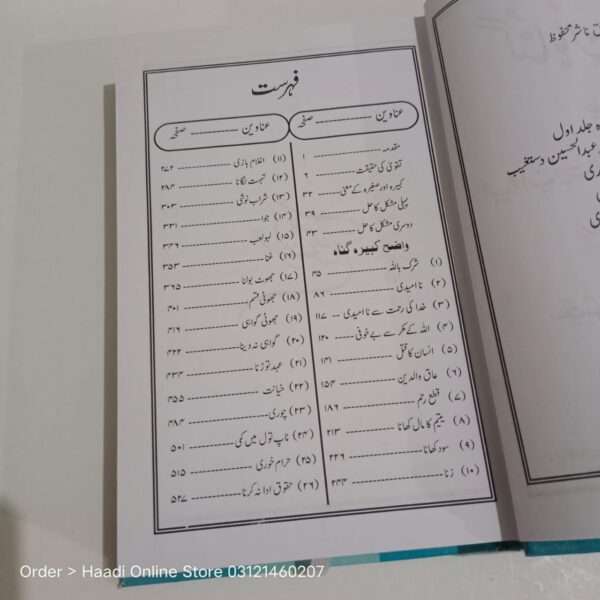 فہرست
عناوین ------------ صفحہ
مقدمہ ------------ ۱
تقویٰ کی حقیقت ------------ ۶
کبیرہ اور صغیرہ کے معنی ------------ ۳۲
پہلی مشکل کا حل ------------ ۳۹
دوسری مشکل کا حل ------------ ۴۳
واضح کبیرہ گناہ
(۱) شرک باللہ ------------ ۴۵
(۲) ناامیدی ------------ ۸۶
(۳) خدا کی رحمت سے ناامیدی -- ۱۱۷
(۴) اللہ کے مکر سے بے خوفی ---- ۱۲۰
(۵) انسان کا قتل ------------ ۱۴۱
(۶) عاق والدین ------------ ۱۵۴
(۷) قطع رحم ------------ ۱۸۶
(۸) یتیم کا مال کھانا ------------ ۲۱۳
(۹) سود کھانا ------------ ۲۲۶
(۱۰) زنا ------------ ۲۴۴
عناوین ------------ صفحہ
(۱۱) اغلام بازی ------------ ۲۷۲
(۱۲) تہمت لگانا ------------ ۲۸۴
(۱۳) شراب نوشی ------------ ۳۰۳
(۱۴) جوا ------------ ۳۳۱
(۱۵) لہو لعب ------------ ۳۴۶
(۱۶) غنا ------------ ۳۵۳
(۱۷) جھوٹ بولنا ------------ ۳۶۵
(۱۸) جھوٹی قسم ------------ ۴۰۱
(۱۹) جھوٹی گواہی ------------ ۴۱۶
(۲۰) گواہی نہ دینا ------------ ۴۲۲
(۲۱) عہد توڑنا ------------ ۴۳۴
(۲۲) خیانت ------------ ۴۵۵
(۲۳) چوری ------------ ۴۸۴
(۲۴) ناپ تول میں کمی ------------ ۵۰۱
(۲۵) حرام خوری ------------ ۵۱۵
(۲۶) حقوق ادا نہ کرنا ------------ ۵۲۷
ناشر محفوظ
جلد اول
عبدالحسین دستغیب
Order > Haadi Online Store 03121460207